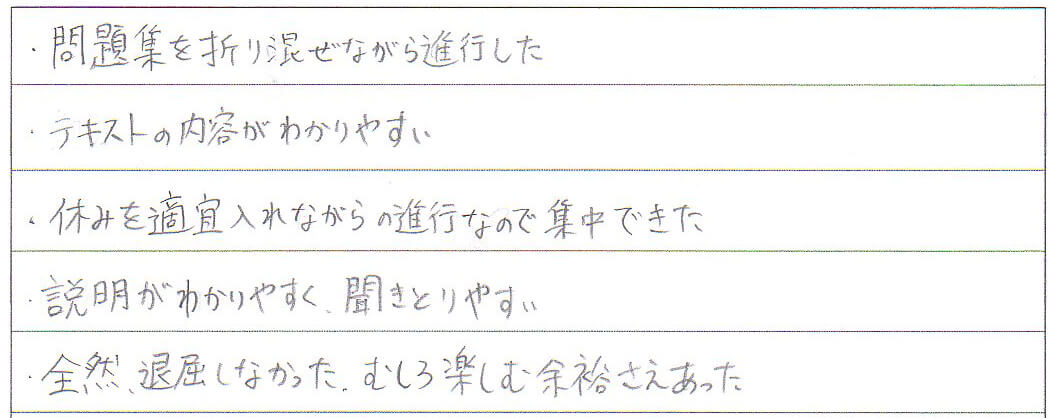 ・問題集を折り混ぜながら進行した
・テキストの内容がわかりやすい
・休みを適宜入れながらの進行なので集中できた
・説明がわかりやすく、聞きとりやすい
・全然、退屈しなかった、むしろ楽しむ余裕さえあった